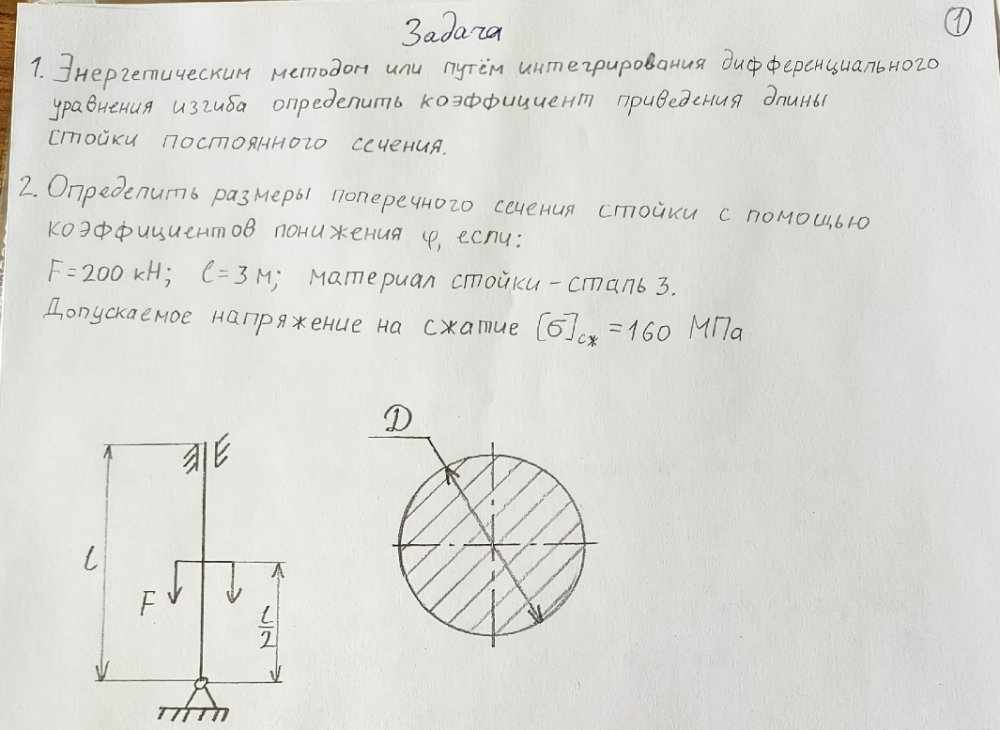 Задача
1
1. Энергетическим методом или путём интегрирования дифференциального
уравнения изгиба определить коэффициент приведения длины
стойки постоянного сечения.
2. Определить размеры поперечного сечения стойки с помощью
коэффициентов понижения φ, если:
F=200 кН; l=3м; материал стойки – сталь 3.
Допускаемое напряжение на сжатие [σ]сж =160 МПа
D
l
F
l/2